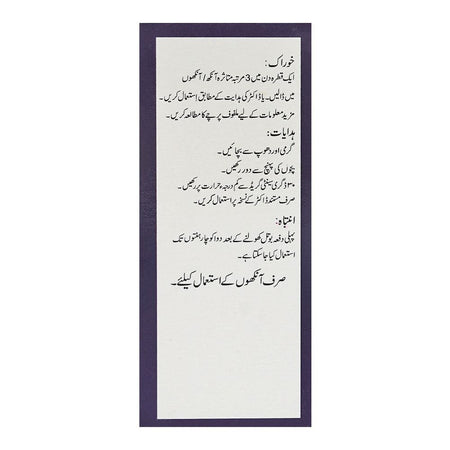 خوراک:
ایک قطرہ دن میں 3 مرتبہ متاثرہ آنکھ/آنکھوں
میں ڈالیں۔ یا ڈاکٹر کی ہدایت کے مطابق استعمال کریں۔
مزید معلومات کے لیے ملفوف پرچے کا مطالعہ کریں۔
ہدایات:
گرمی اور دھوپ سے بچائیں۔
بچوں کی پہنچ سے دور رکھیں۔
۳۰ ڈگری سینٹی گریڈ سے کم درجہ حرارت پر رکھیں۔
صرف مستند ڈاکٹر کے نسخہ پر استعمال کریں۔
انتباہ:
پہلی دفعہ بوتل کھولنے کے بعد دوا کو چار ہفتوں تک
استعمال کیا جا سکتا ہے۔
صرف آنکھوں کے استعمال کیلئے۔